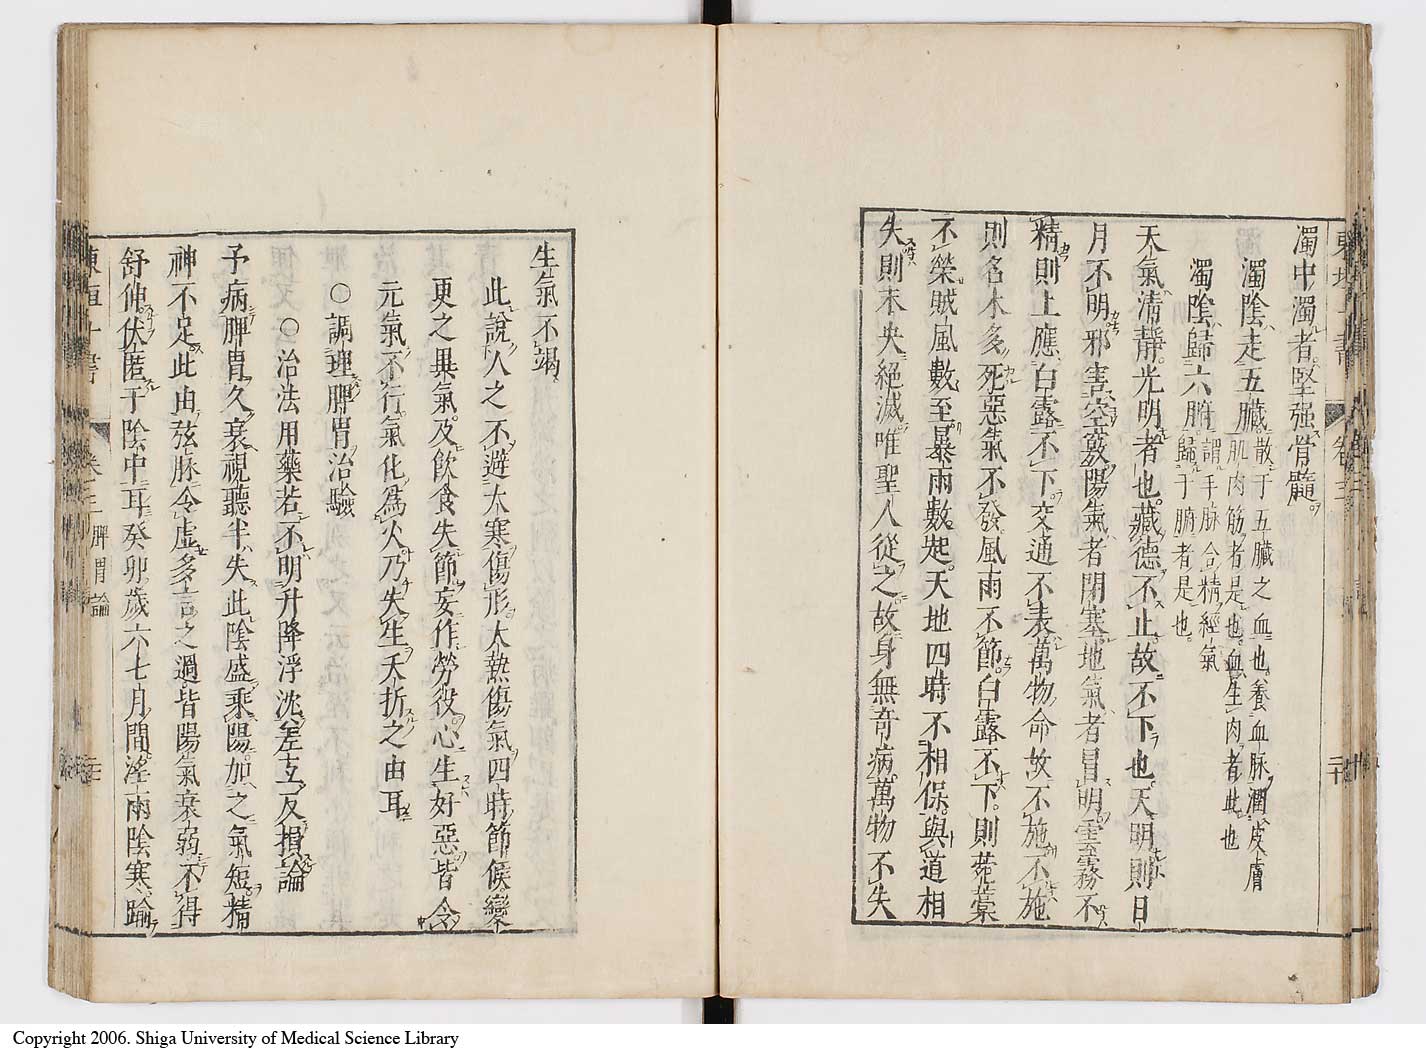 東垣十書 卷三 二十
濁中濁者堅强骨髓
濁陰走五臟 散于五臟之血也養血脉潤皮膚
肌肉筋者是也血生肉者此也
濁陰歸六腑 謂手脉合精經氣
歸于腑者是也
天氣清靜光明者也藏德不止故不下也天明則日
月不明邪害空竅陽氣者閉塞地氣者冒明雲霧不
精則上應白露不下交通不表萬物命故不施不施
則名木多死惡氣不發風雨不節白露不下則菀藁
不榮賊風數至暴雨數起天地四時不相保與道相
失則未央絶滅唯聖人從之故身無奇病萬物不失
生氣不竭
此說人之不避大寒傷形大熱傷氣四時節候變
更之異氣及飲食失節妄作勞役心生好惡皆令
元氣不行氣化爲火乃失生夭折之由耳
〇調理脾胃治驗
〇治法用藥若不明升降浮沈差互反損論
予病脾胃久衰視聽半失此陰盛乘陽加之氣短精
神不足此由弦脉令虛多言之過皆陽氣衰弱不得
舒伸伏匿于陰中耳癸卯歲六七月間淫雨陰寒踰
東垣十書 卷三 脾胃論
Copyright 2006. Shiga University of Medical Science Library